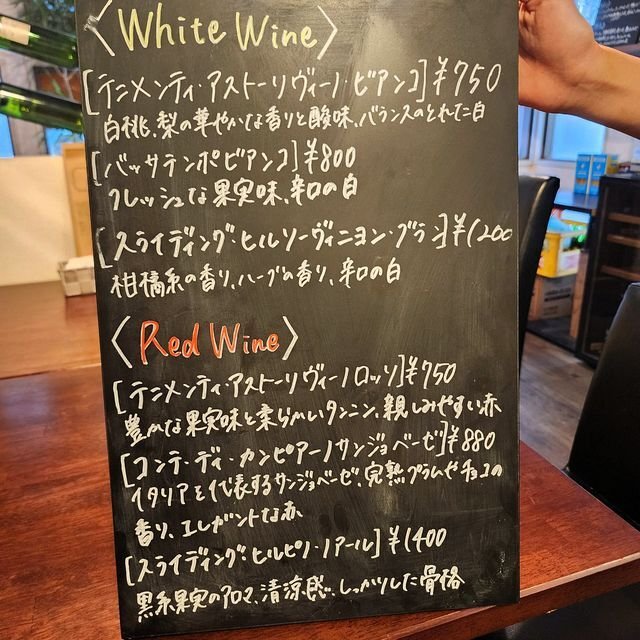 〈White Wine〉
[テニメンティ・アストーリ ヴィーノ・ビアンコ]¥750
白桃、梨の華やかな香りと酸味、バランスのとれた白
[バッサテンポビアンコ]¥800
フレッシュな果実味、辛口の白
[スライディング・ヒルソーヴィニヨン・ブラン]¥1200
柑橘系の香り、ハーブの香り、辛口の白
〈Red Wine〉
[テニメンティ・アストーリ ヴィーノロッソ]¥750
豊かな果実味と柔らかいタンニン、親しみやすい赤
[コンテ・ディ・カンピアーノサンジョベーゼ]¥880
イタリアを代表するサンジョベーゼ、完熟プラムやチョコの
香り、エレガントな赤
[スライディング・ヒルピノ・ノアール]¥1400
黒系果実のアロマ、清涼感、しっかりした骨格